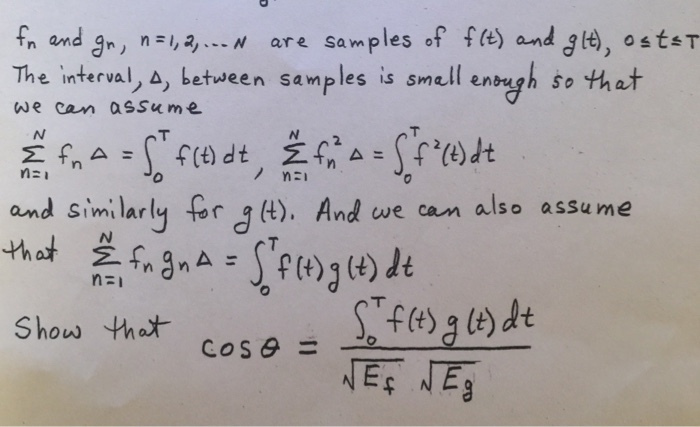 fn and gn, n=1,2,... N are samples of f(t) and g(t), 0≤t≤T
The interval, Δ, between samples is small enough so that
we can assume
∑_{n=1}^{N} fn Δ = ∫_0^T f(t) dt, ∑_{n=1}^{N} fn² Δ = ∫_0^T f²(t) dt
and similarly for g(t). And we can also assume
that ∑_{n=1}^{N} fn gn Δ = ∫_0^T f(t) g(t) dt
Show that cos θ = ∫_0^T f(t) g(t) dt / (√Ef √Eg)